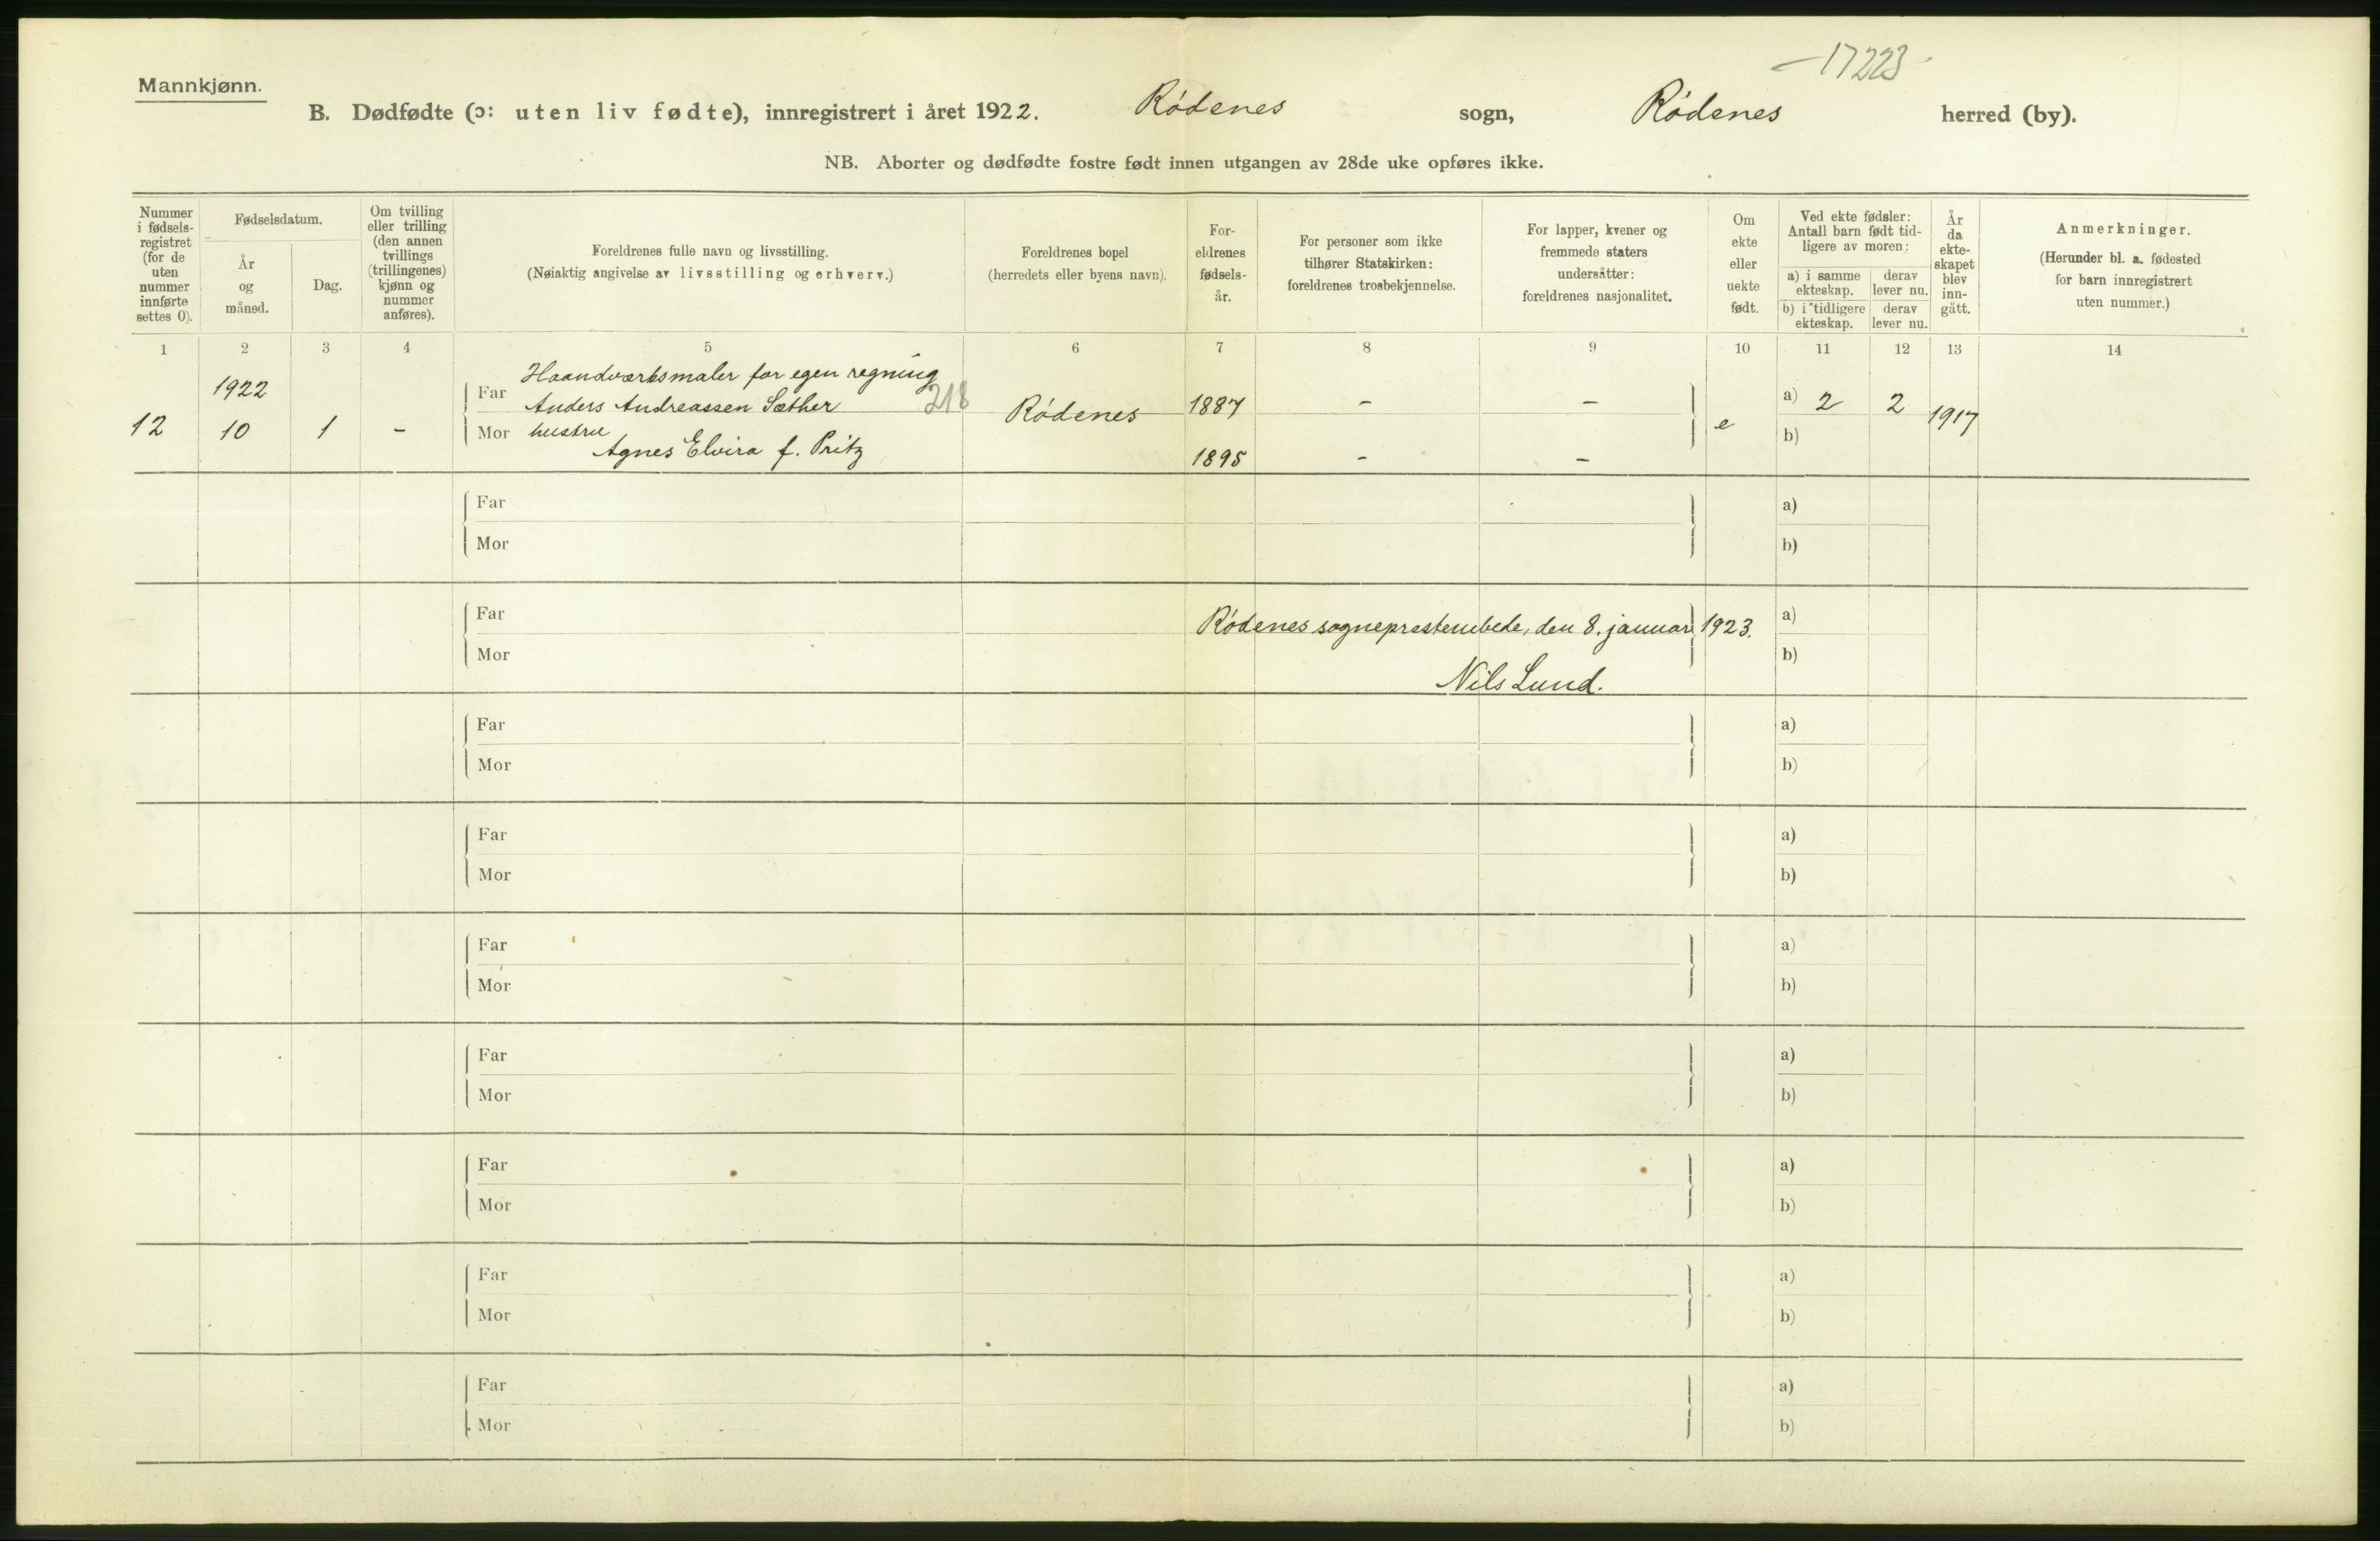 -17223
Mannkjønn.
B. Dødfødte (ɔ: uten liv fødte), innregistrert i året 1922. Rödenes sogn, Rödenes herred (by).
NB. Aborter og dødfødte fostre født innen utgangen av 28de uke opføres ikke.
Nummer
i fødsels-
registret
(for de
uten
nummer
innførte
settes 0).
Fødselsdatum.
År
og
måned.
Dag.
Om tvilling
eller trilling
(den annen
tvillings
(trillingenes)
kjønn og
nummer
anføres).
Foreldrenes fulle navn og livsstilling.
(Nøiaktig angivelse av livsstilling og erhverv.)
Foreldrenes bopel
(herredets eller byens navn).
For-
eldrenes
fødsels-
år.
For personer som ikke
tilhører Statskirken:
foreldrenes trosbekjennelse.
For lapper, kvener og
fremmede staters
undersåtter:
foreldrenes nasjonalitet.
Om
ekte
eller
uekte
født.
Ved ekte fødsler:
Antall barn født tid-
ligere av moren:
a) i samme
ekteskap.
derav
lever nu.
b) i tidligere
ekteskap.
derav
lever nu.
År
da
ekte-
skapet
blev
inn-
gått.
Anmerkninger.
(Herunder bl. a. fødested
for barn innregistrert
uten nummer.)
1 2 3 4 5 6 7 8 9 10 11 12 13 14
Haandværksmaler for egen regning
1922 Far Anders Andreassen Sæther 218 Rödenes 1887 - - a) 2 2 1917
12 10 1 - Mor hustru e b)
Agnes Elvira f. Pritz 1895 - -
Far a)
Mor b)
Far Rödenes sogneprestembede, den 8. januar 1923. a)
Mor b)
Nils Lund.
Far a)
Mor b)
Far a)
Mor b)
Far a)
Mor b)
Far a)
Mor b)
Far a)
Mor b)
Far a)
Mor b)
Far a)
Mor b)